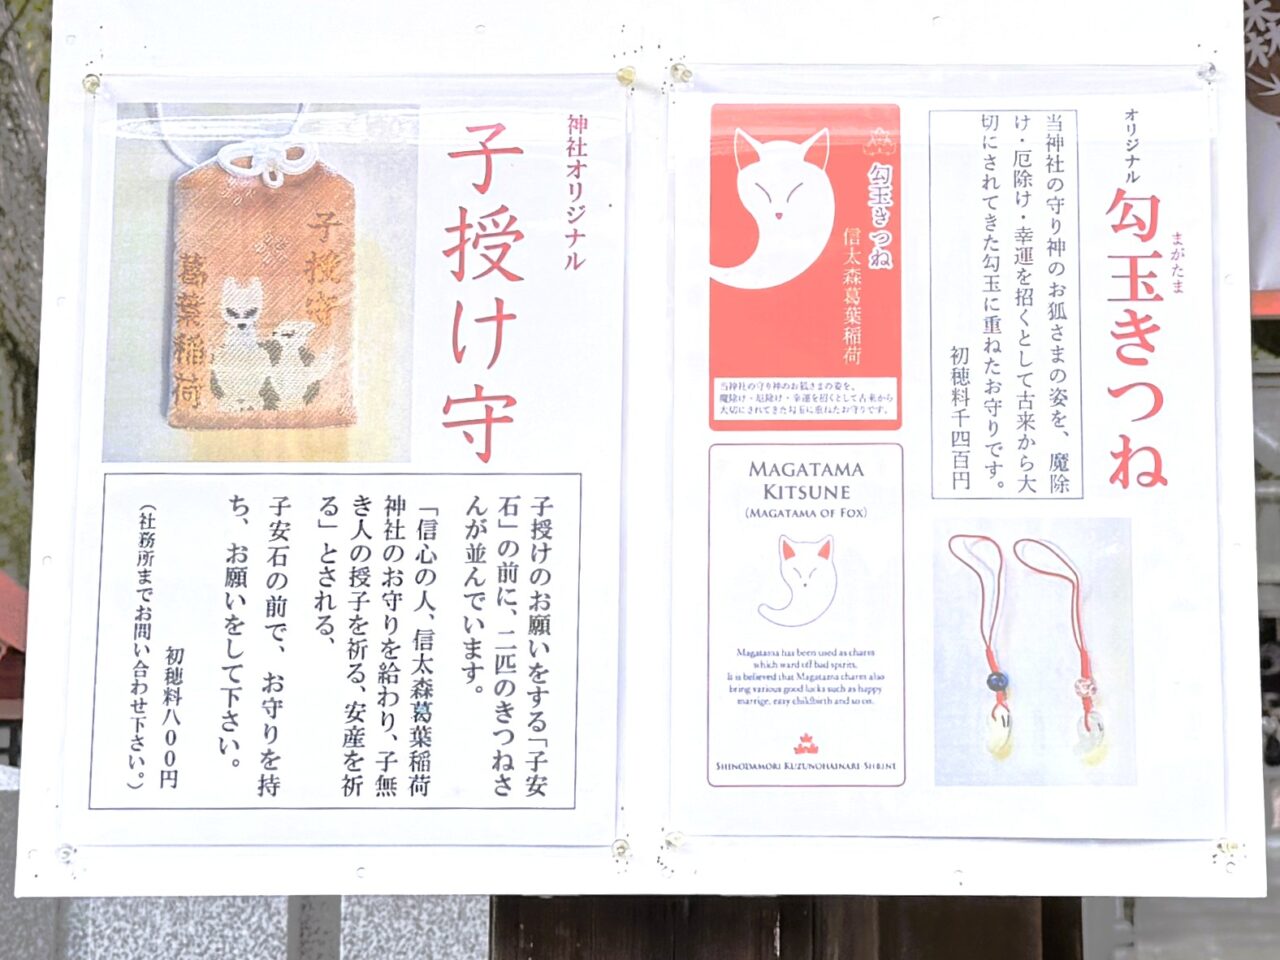 オリジナル
勾玉きつね
まがたま
当神社の守り神のお狐さまの姿を、魔除
け・厄除け・幸運を招くとして古来から大
切にされてきた勾玉に重ねたお守りです。
初穂料千四百円
勾玉きつね
信太森葛葉稲荷
当神社の守り神のお狐さまの姿を、
魔除け・厄除け・幸運を招くとして古来から
大切にされてきた勾玉に重ねたお守りです。
MAGATAMA
KITSUNE
(MAGATAMA OF FOX)
Magatama has been used as charm
which ward off bad spirits.
It is believed that Magatama charm also
bring various good lucks such as happy
marrige, easy childbirth and so on.
SHINODAMORI KUZUNOHAINARI SHRINE
神社オリジナル
子授け守
子授守
葛葉稲荷
子授けのお願いをする「子安
石」の前に、二匹のきつねさ
んが並んでいます。
「信心の人、信太森葛葉稲荷
神社のお守りを給わり、子無
き人の授子を祈る、安産を祈
る」とされる、
子安石の前で、お守りを持
ち、お願いをして下さい。
初穂料八００円
（社務所までお問い合わせ下さい。）